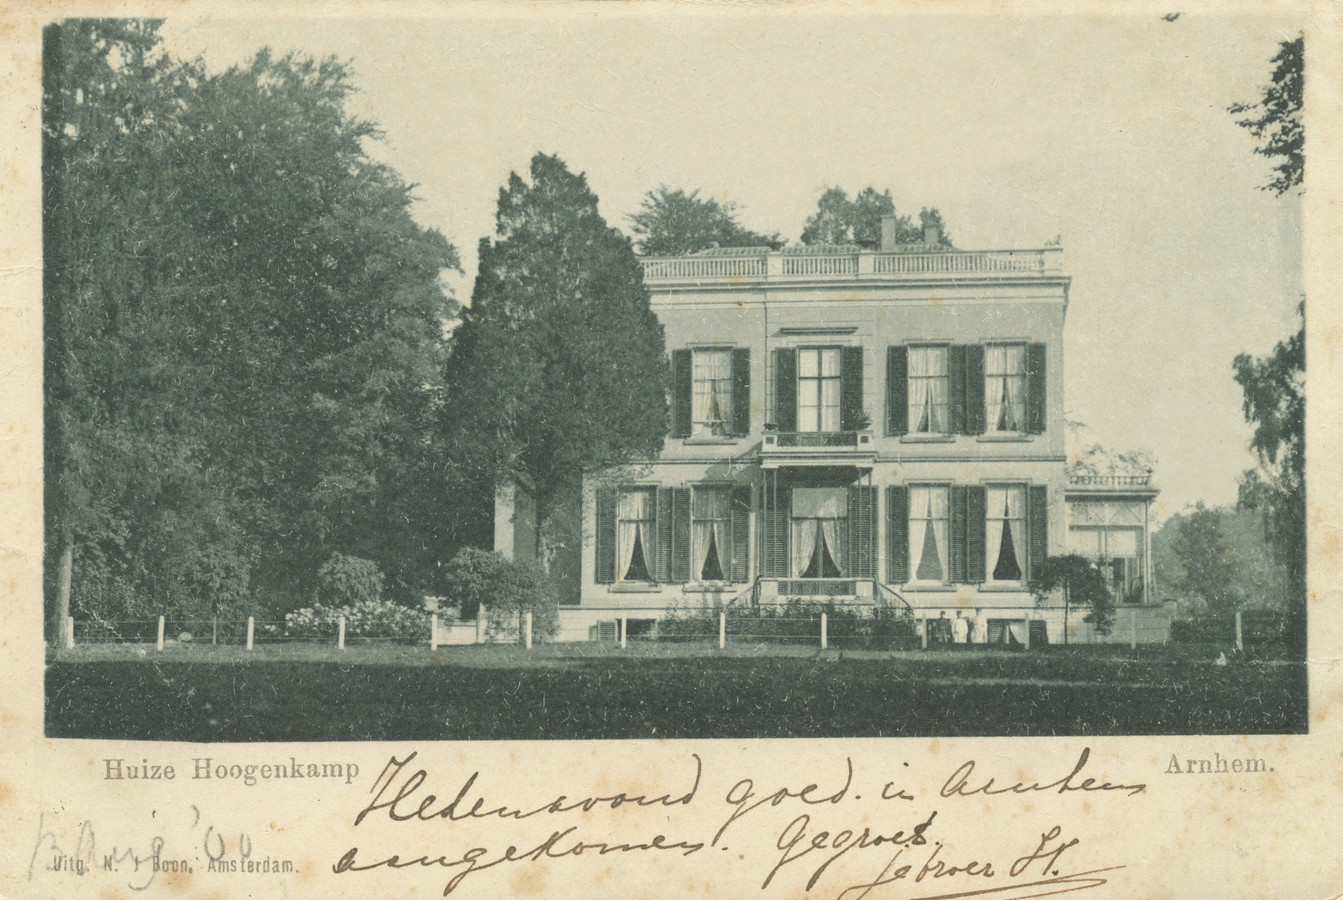 Huize Hoogenkamp
Arnhem.
Hedenavond goed. in Arnhem
aangekomen. Gegroet.
Uitg. N. J Boon, Amsterdam.
Aug '00